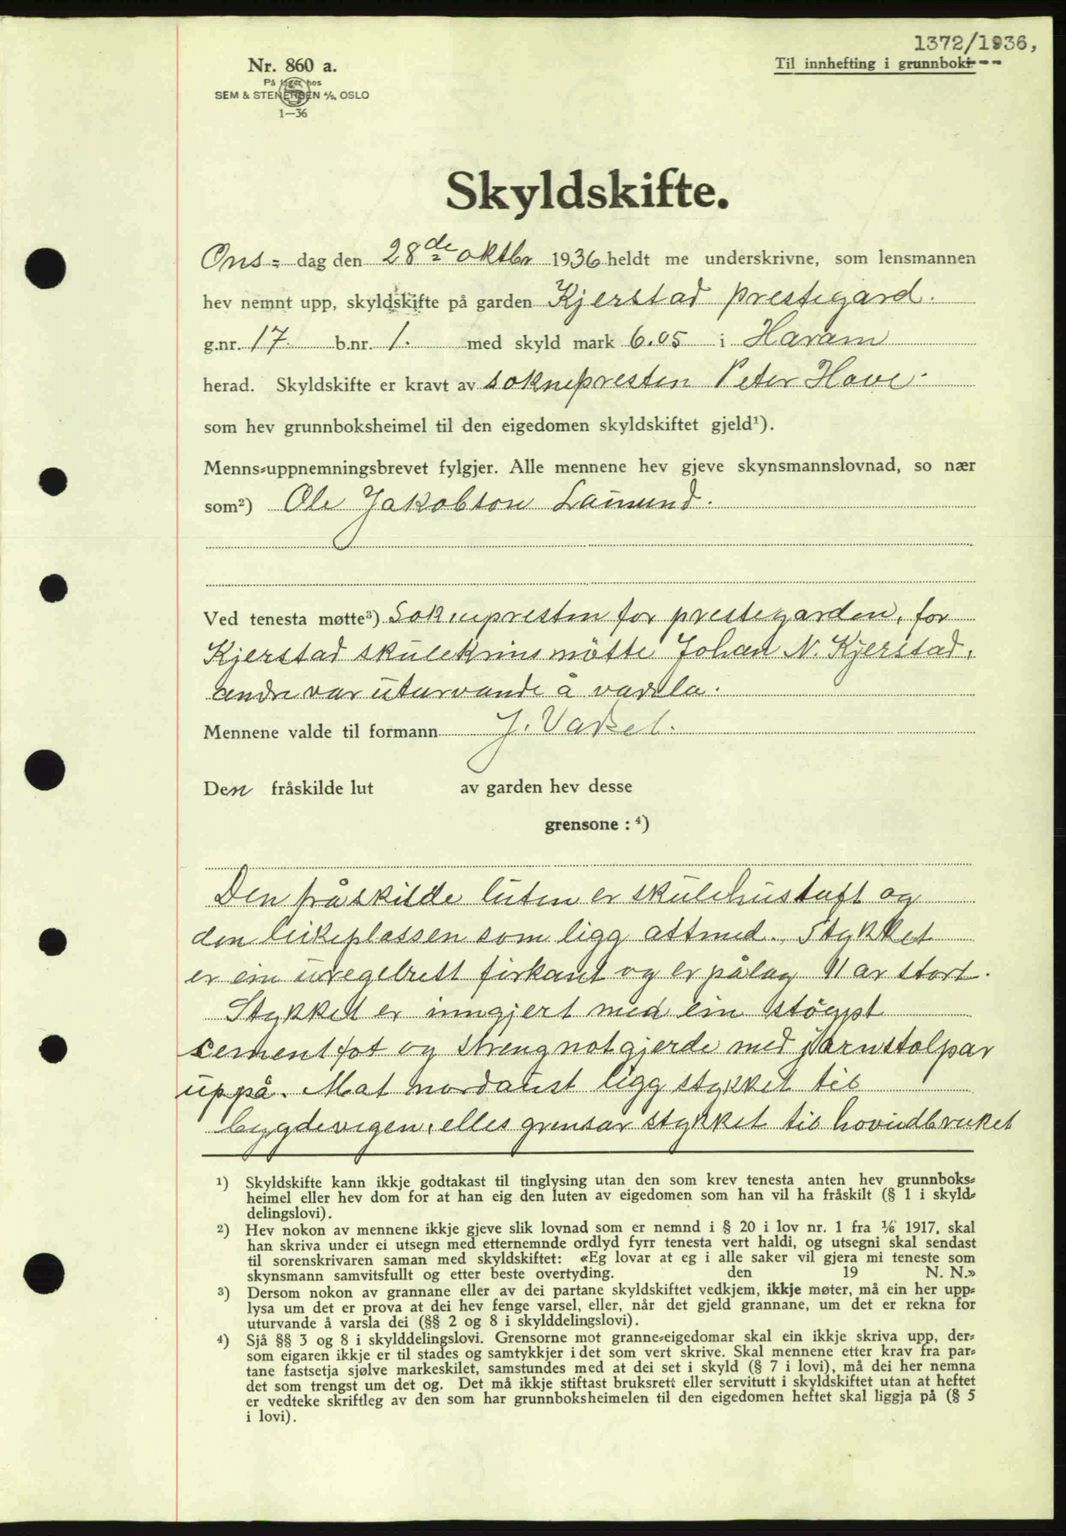 1372/1936,
Til innhefting i grunnboki---
Nr. 860 a.
På lager hos
SEM & STENERSEN A/S, OSLO
1—36
Skyldskifte.
Ons- dag den 28de oktbr 1936 heldt me underskrivne, som lensmannen
hev nemnt upp, skyldskifte på garden Kjerstad prestegard.
g.nr. 17. b.nr. 1. med skyld mark 6.05 i Haram
herad. Skyldskifte er kravt av soknepresten Peter Hove.
som hev grunnboksheimel til den eigedomen skyldskiftet gjeld¹).
Menns-uppnemningsbrevet fylgjer. Alle mennene hev gjeve skynsmannslovnad, so nær
som²) Ole Jakobson
Ved tenesta møtte³) Soknepresten for prestegarden, for
Kjerstad skulekrins møtte Johan N. Kjerstad,
andre var uturvande å varsla.
Mennene valde til formann J.
Den fråskilde lut av garden hev desse
grensone : ⁴)
Den fråskilde luten er skulehustuft og
den leikeplassen som ligg attmed. Stykket
er ein uregelrett firkant og er pålag 11 ar stort.
Stykket er inngjert med ein støypt
cementfot og strengnotgjerde med jarnstolpar
uppå. Mot nordaust ligg stykket til
bygdevegen, elles grensar stykket til hovudbruket
¹) Skyldskifte kann ikkje godtakast til tinglysing utan den som krev tenesta anten hev grunnboks-
heimel eller hev dom for at han eig den luten av eigedomen som han vil ha fråskilt (§ 1 i skyld-
delingslovi).
²) Hev nokon av mennene ikkje gjeve slik lovnad som er nemnd i § 20 i lov nr. 1 fra 1/6 1917, skal
han skriva under ei utsegn med etternemnde ordlyd fyrr tenesta vert haldi, og utsegni skal sendast
til sorenskrivaren saman med skyldskiftet: «Eg lovar at eg i alle saker vil gjera mi teneste som
skynsmann samvitsfullt og etter beste overtyding. den 19 N. N.»
³) Dersom nokon av grannane eller av dei partane skyldskiftet vedkjem, ikkje møter, må ein her upp-
lysa um det er prova at dei hev fenge varsel, eller, når det gjeld grannane, um det er rekna for
uturvande å varsla dei (§§ 2 og 8 i skylddelingslovi).
⁴) Sjå §§ 3 og 8 i skylddelingslovi. Grensorne mot granne-eigedomar skal ein ikkje skriva upp, der-
som eigaren ikkje er til stades og samtykkjer i det som vert skrive. Skal mennene etter krav fra par-
tane fastsetja sjølve markeskilet, samstundes med at dei set i skyld (§ 7 i lovi), må dei her nemna
det som trengst um det og. Det må ikkje stiftast bruksrett eller servitutt i skyldskiftet utan at heftet
er vedteke skriftleg av den som har grunnboksheimelen til den eigedomen heftet skal liggja på (§ 5
i lovi).